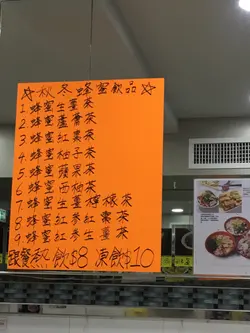 ☆秋冬蜂蜜飲品☆
1 蜂蜜生薑茶
2 蜂蜜蘆薈茶
3 蜂蜜紅棗茶
4 蜂蜜柚子茶
5 蜂蜜蘋果茶
6 蜂蜜西柚茶
7 蜂蜜生薑檸檬茶
8 蜂蜜紅參紅棗茶
9 蜂蜜紅參生薑茶
跟餐熱飲$8 凍飲$10